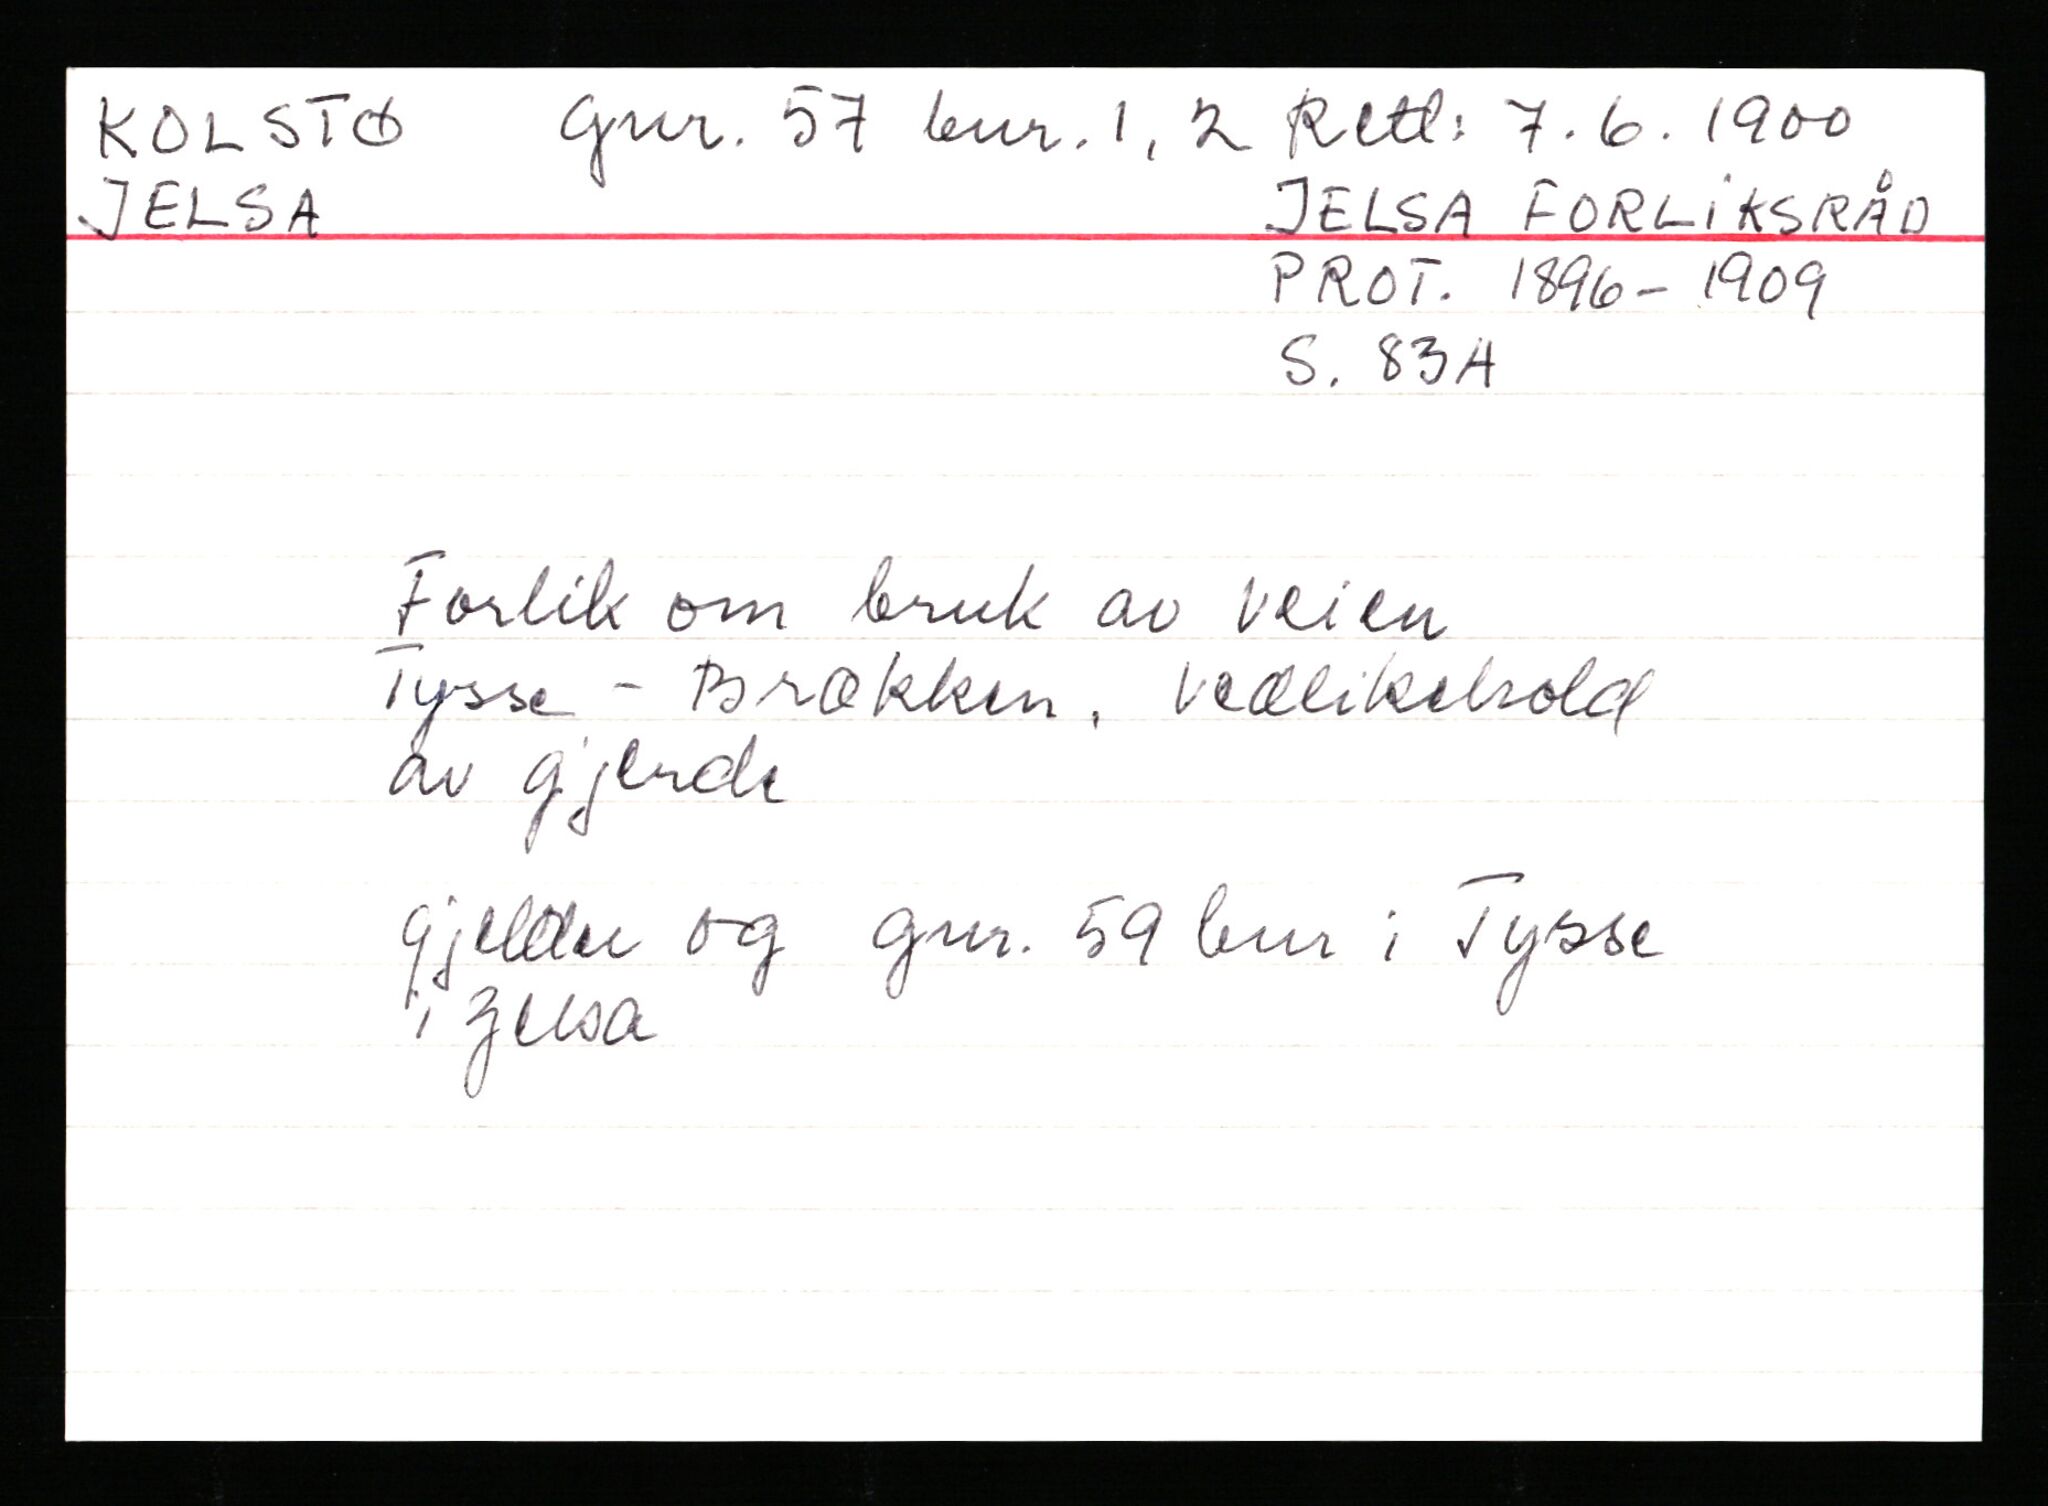 KOLSTØ gnr. 57 bnr. 1, 2 Retl: 7.6.1900
JELSA JELSA FORLIKSRÅD
PROT. 1896-1909
S. 83A
Forlik om bruk av veien
Tysse - Brækken. Vedlikehold
av gjerde
gjelder og gnr. 59 bnr i Tysse
i Jelsa